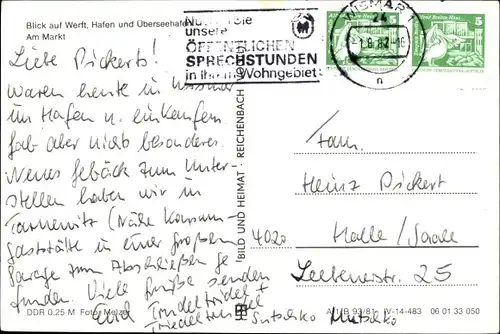 Blick auf Werft, Hafen und Überseehafen
Am Markt
Nutzen Sie
unsere
ÖFFENTLICHEN
SPRECHSTUNDEN
in Ihrem Wohngebiet
WISMAR 1
24
-1.8.82-16
n
5
5
Liebe Dickerts!
Waren heute in Wismar
im Hafen u. einkaufen
gab aber nichts besonderes.
Neues Gebäck zum Unter-
stellen haben wir in
Tarnewitz (Nähe Konsum-
gaststätte in einer großen
Garage zum Abschließen ge
funden. Viele Grüße senden
und
BILD UND HEIMAT REICHENBACH
Fam.
Heinz Dickert
4020 Halle/Saale
Leebenerstr. 25
DDR 0,25 M Foto: Melzer
A1/B 92/81 IV-14-483 06 01 33 050